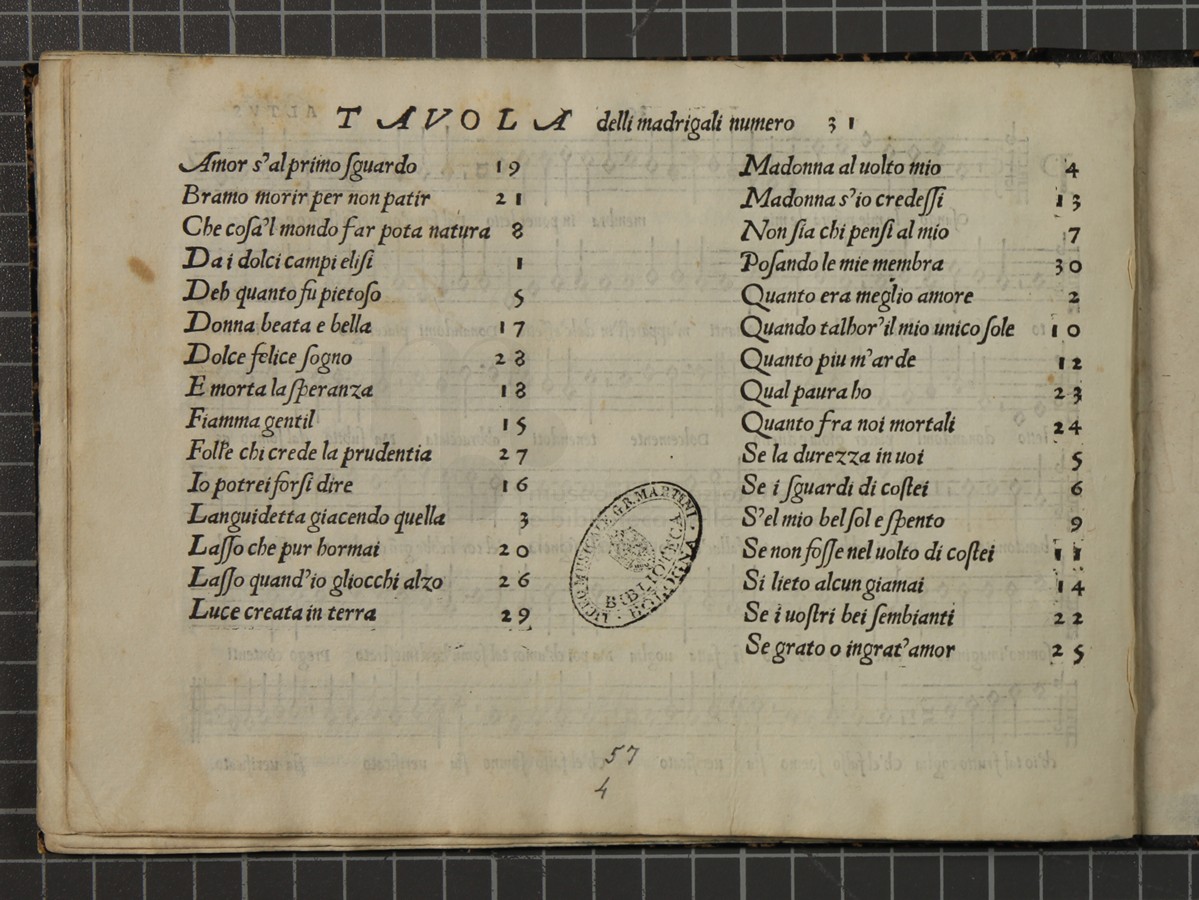 TAVOLA delli madrigali numero 31
Amor s'al primo ſguardo 19
Bramo morir per non patir 21
Che coſa'l mondo far pota natura 8
Da i dolci campi eliſi 1
Deh quanto fu pietoſo 5
Donna beata e bella 17
Dolce felice ſogno 28
E morta la ſperanza 18
Fiamma gentil 15
Folle chi crede la prudentia 27
Io potrei forſi dire 16
Languidetta giacendo quella 3
Laſſo che pur hormai 20
Laſſo quand'io gliocchi alzo 26
Luce creata in terra 29
Madonna al uolto mio 4
Madonna s'io credeſſi 13
Non ſia chi penſi al mio 7
Poſando le mie membra 30
Quanto era meglio amore 2
Quando talhor'il mio unico ſole 10
Quanto piu m'arde 12
Qual paura ho 23
Quanto fra noi mortali 24
Se la durezza in uoi 5
Se i ſguardi di coſtei 6
S'el mio bel ſol e ſpento 9
Se non foſſe nel uolto di coſtei 11
Si lieto alcun giamai 14
Se i uoſtri bei ſembianti 22
Se grato o ingrat'amor 25
LICEO MUSICALE G.B. MARTINI · BOLOGNA ·
BIBLIOTECA
57
4